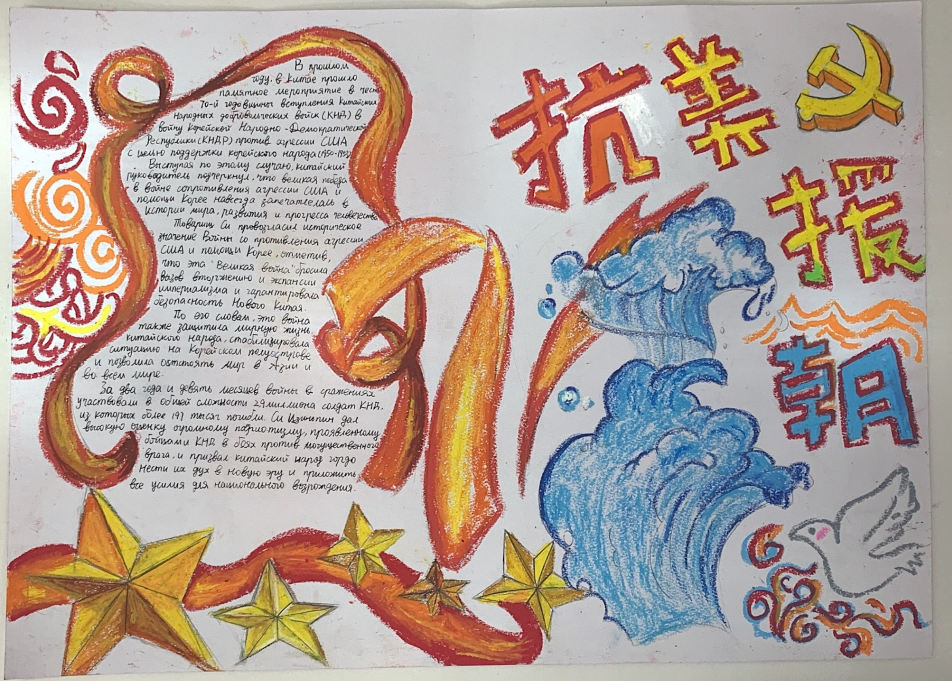 В прошлом
году, в Китае прошло
памятное мероприятие в честь
70-й годовщины вступления Китайских
народных добровольческих войск (КНД) в
войну Корейской Народно-Демократической
Республики (КНДР) против агрессии США
с целью поддержки корейского народа (1950-1953).
Выступая по этому случаю, китайский
руководитель подчеркнул, что великая победа
в войне сопротивления агрессии США и
помощи Корее навсегда запечатлелась в
истории мира, развития и прогресса человечества
Товарищ Си провозгласил историческое
значение Войны со противления агрессии
США и помощи Корее, отметив,
что эта "великая война" бросила
вызов вторжению и экспансии
империализма и гарантировала
безопасность Нового Китая.
По его словам, это война
также защитила мирную жизнь
китайского народа, стабилизировала
ситуацию на Корейском полуострове
и позволила отстоять мир в Азии и
во всём мире.
За два года и девять месяцев войны в сражениях
участвовали в общей сложности 2.9 миллиона солдат КНД,
из которых более 197 тысяч погибли. Си Цзиньпин дал
высокую оценку огромному патриотизму, проявленному
бойцами КНД в боях против могущественного
врага, и призвал китайский народ гордо
нести их дух в новую эру и приложить
все усилия для национального возрождения.
抗美
援
朝